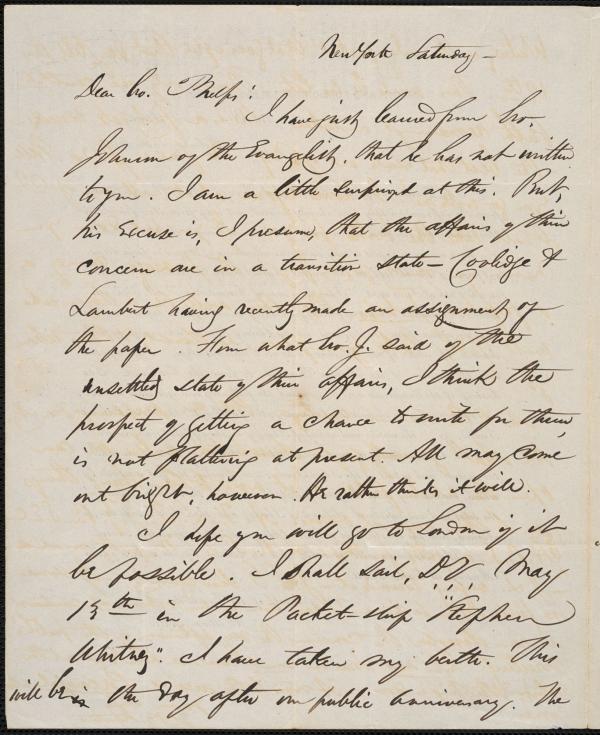 New York Saturday –
Dear bro. Phelps:
I have just learned from bro.
Johnson of the Evangelist, that he has not written
to you. I am a little surprised at this. But,
his excuse is, I presume, that the affairs of their
concern are in a transition state – Coolidge &
Lambert having recently made an assignment of
the paper. From what bro. J. said of the
unsettled state of their affairs, I think the
prospect of getting a chance to write for them,
is not flattering at present. All may come
out bright, however. He rather thinks it will.
I hope you will go to London if it
be possible. I shall sail, D.V., May
13th in the Packet-ship "Stephen
Whitney". I have taken my berth. This
will be the day after our public anniversary. The